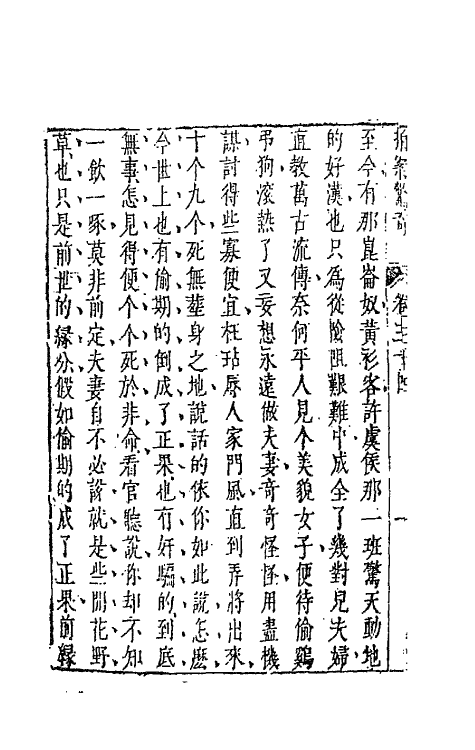 拍案驚奇 卷三十四 一
至今有那崑崙奴黃衫客許虞侯那一班驚天動地
的好漢也只為從險阻艱難中成全了幾對兒夫婦
直教萬古流傳奈何平人見个美貌女子便待偷鷄
弔狗滚熱了又妄想永遠做夫妻竒竒怪怪用盡機
謀討得些寡便宜枉玷辱人家門風直到弄將出來
十个九个死無塟身之地說話的依你如此說怎麽
今世上也有偷期的倒成了正果也有奸騙的到底
無事怎見得便个个死於非命看官聽說你却不知
一飲一啄莫非前定夫妻自不必說就是些閒花野
草也只是前世的緣分假如偷期的成了正果前緣